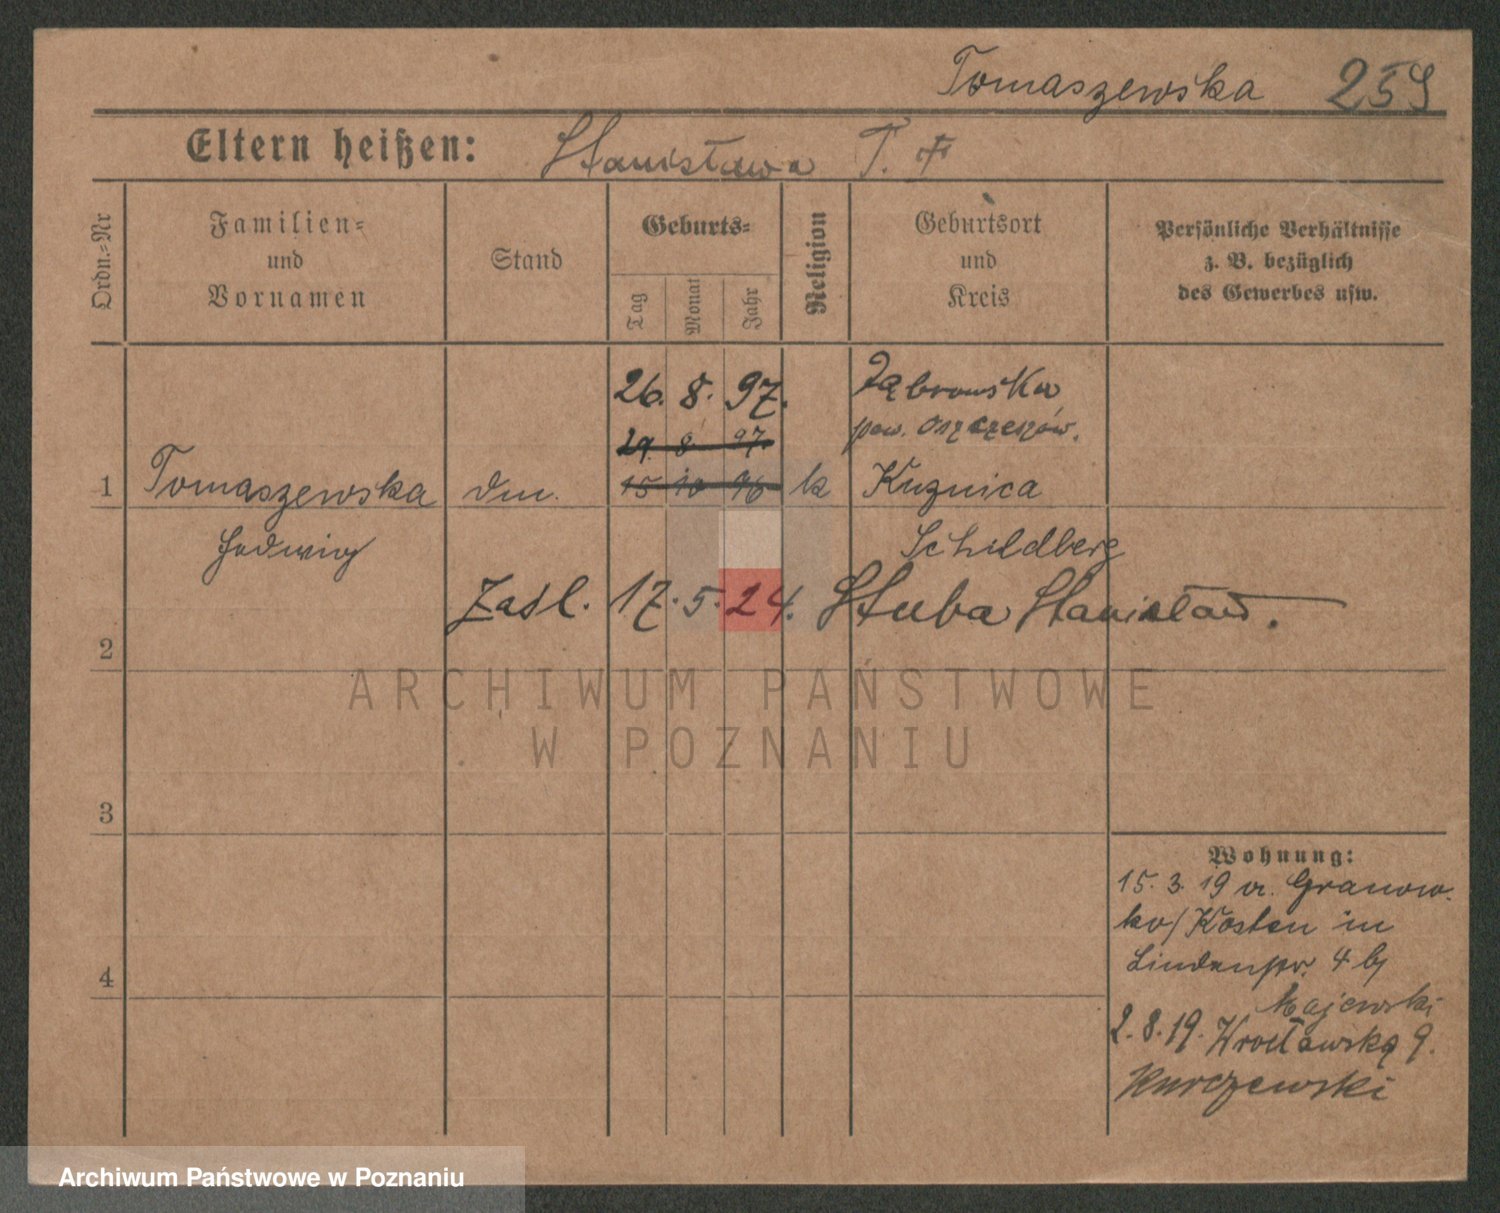 Tomaszewska 259
Eltern heißen: Stanisława T. F
Ordn.=Nr
Familien=
und
Vornamen
Stand
Geburts=
Tag
Monat
Jahr
Religion
Geburtsort
und
Kreis
Persönliche Verhältnisse
z. B. bezüglich
des Gewerbes usw.
26. 8. 97. Dąbrowska
29. 8 97. pow.
1 Tomaszewska 15 10 96 k Kuznica
Hedwig Schildberg
Zaśl. 17. 5. 24. Stuba Stanisław.
2
ARCHIWUM PAŃSTWOWE
W POZNANIU
3
Wohnung:
15. 3. 19 v. Granow-
ko/ Kosten in
Lindenstr. 4 b/
4
Majewski
2. 8. 19. Wrocławska 9.
Kurczewski
Archiwum Państwowe w Poznaniu